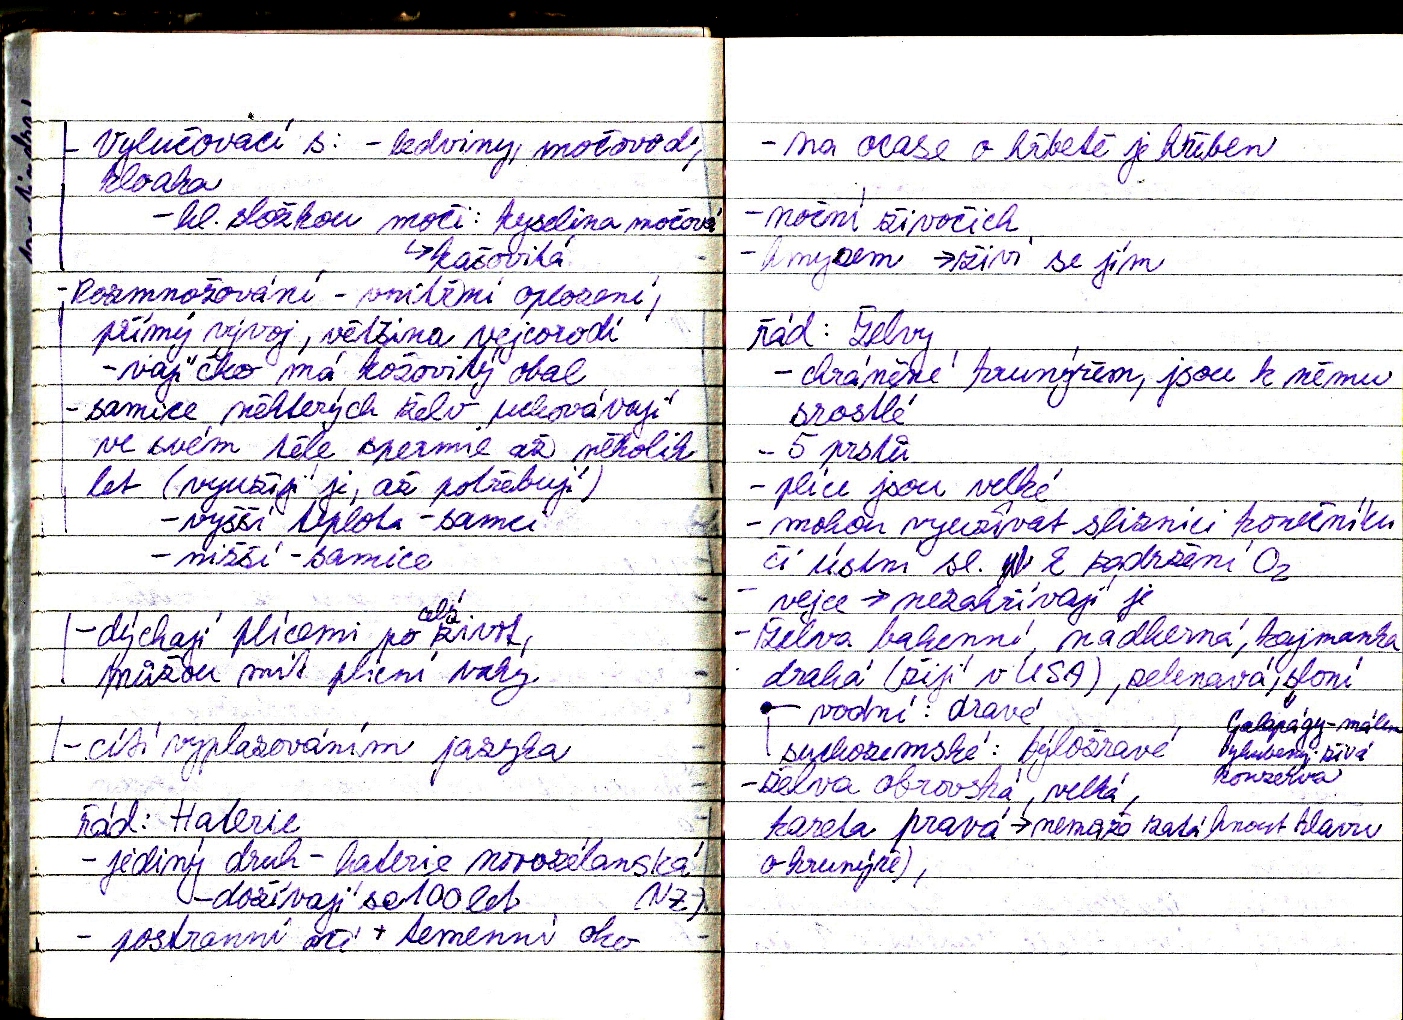 - Vylučovací s: - ledviny, močovod,
kloaka
- hl. složkou moči: kyselina močová
↳ kašovitá
- Rozmnožování - vnitřní oplození,
přímý vývoj, většina vejcorodí
- vajíčko má kožovitý obal
- samice některých želv uchovávají
ve svém těle spermie až několik
let (využijí je, až potřebují)
- vyšší teplota - samci
- nižší - samice
- dýchají plícemi po celý život,
můžou mít plicní vaky
- cítí vyplazováním jazyka
Řád: Haterie
- jediný druh - haterie novozélanská
- dožívají se 100 let (NZ)
- postranní oči + temenní oko
- na ocase a hřbetě je hřeben
- noční živočich
- hmyzem → živí se jím
řád: Želvy
- chráněné krunýřem, jsou k němu
srostlé
- 5 prstů
- plíce jsou velké
- mohou využívat sliznici konečníku
či ústní sl. k zadržení O₂
- vejce → nezahřívají je
- Želva bahenní, nádherná, kajmanka
dravá (žijí v USA), zelenavá, sloní
- vodní: dravé
Galapágy - málem
vyhubený - živá
konzerva
suchozemské: býložravé
- želva obrovská, velká,
kareta pravá → nemůžo zatáhnout hlavu
o krunýře),